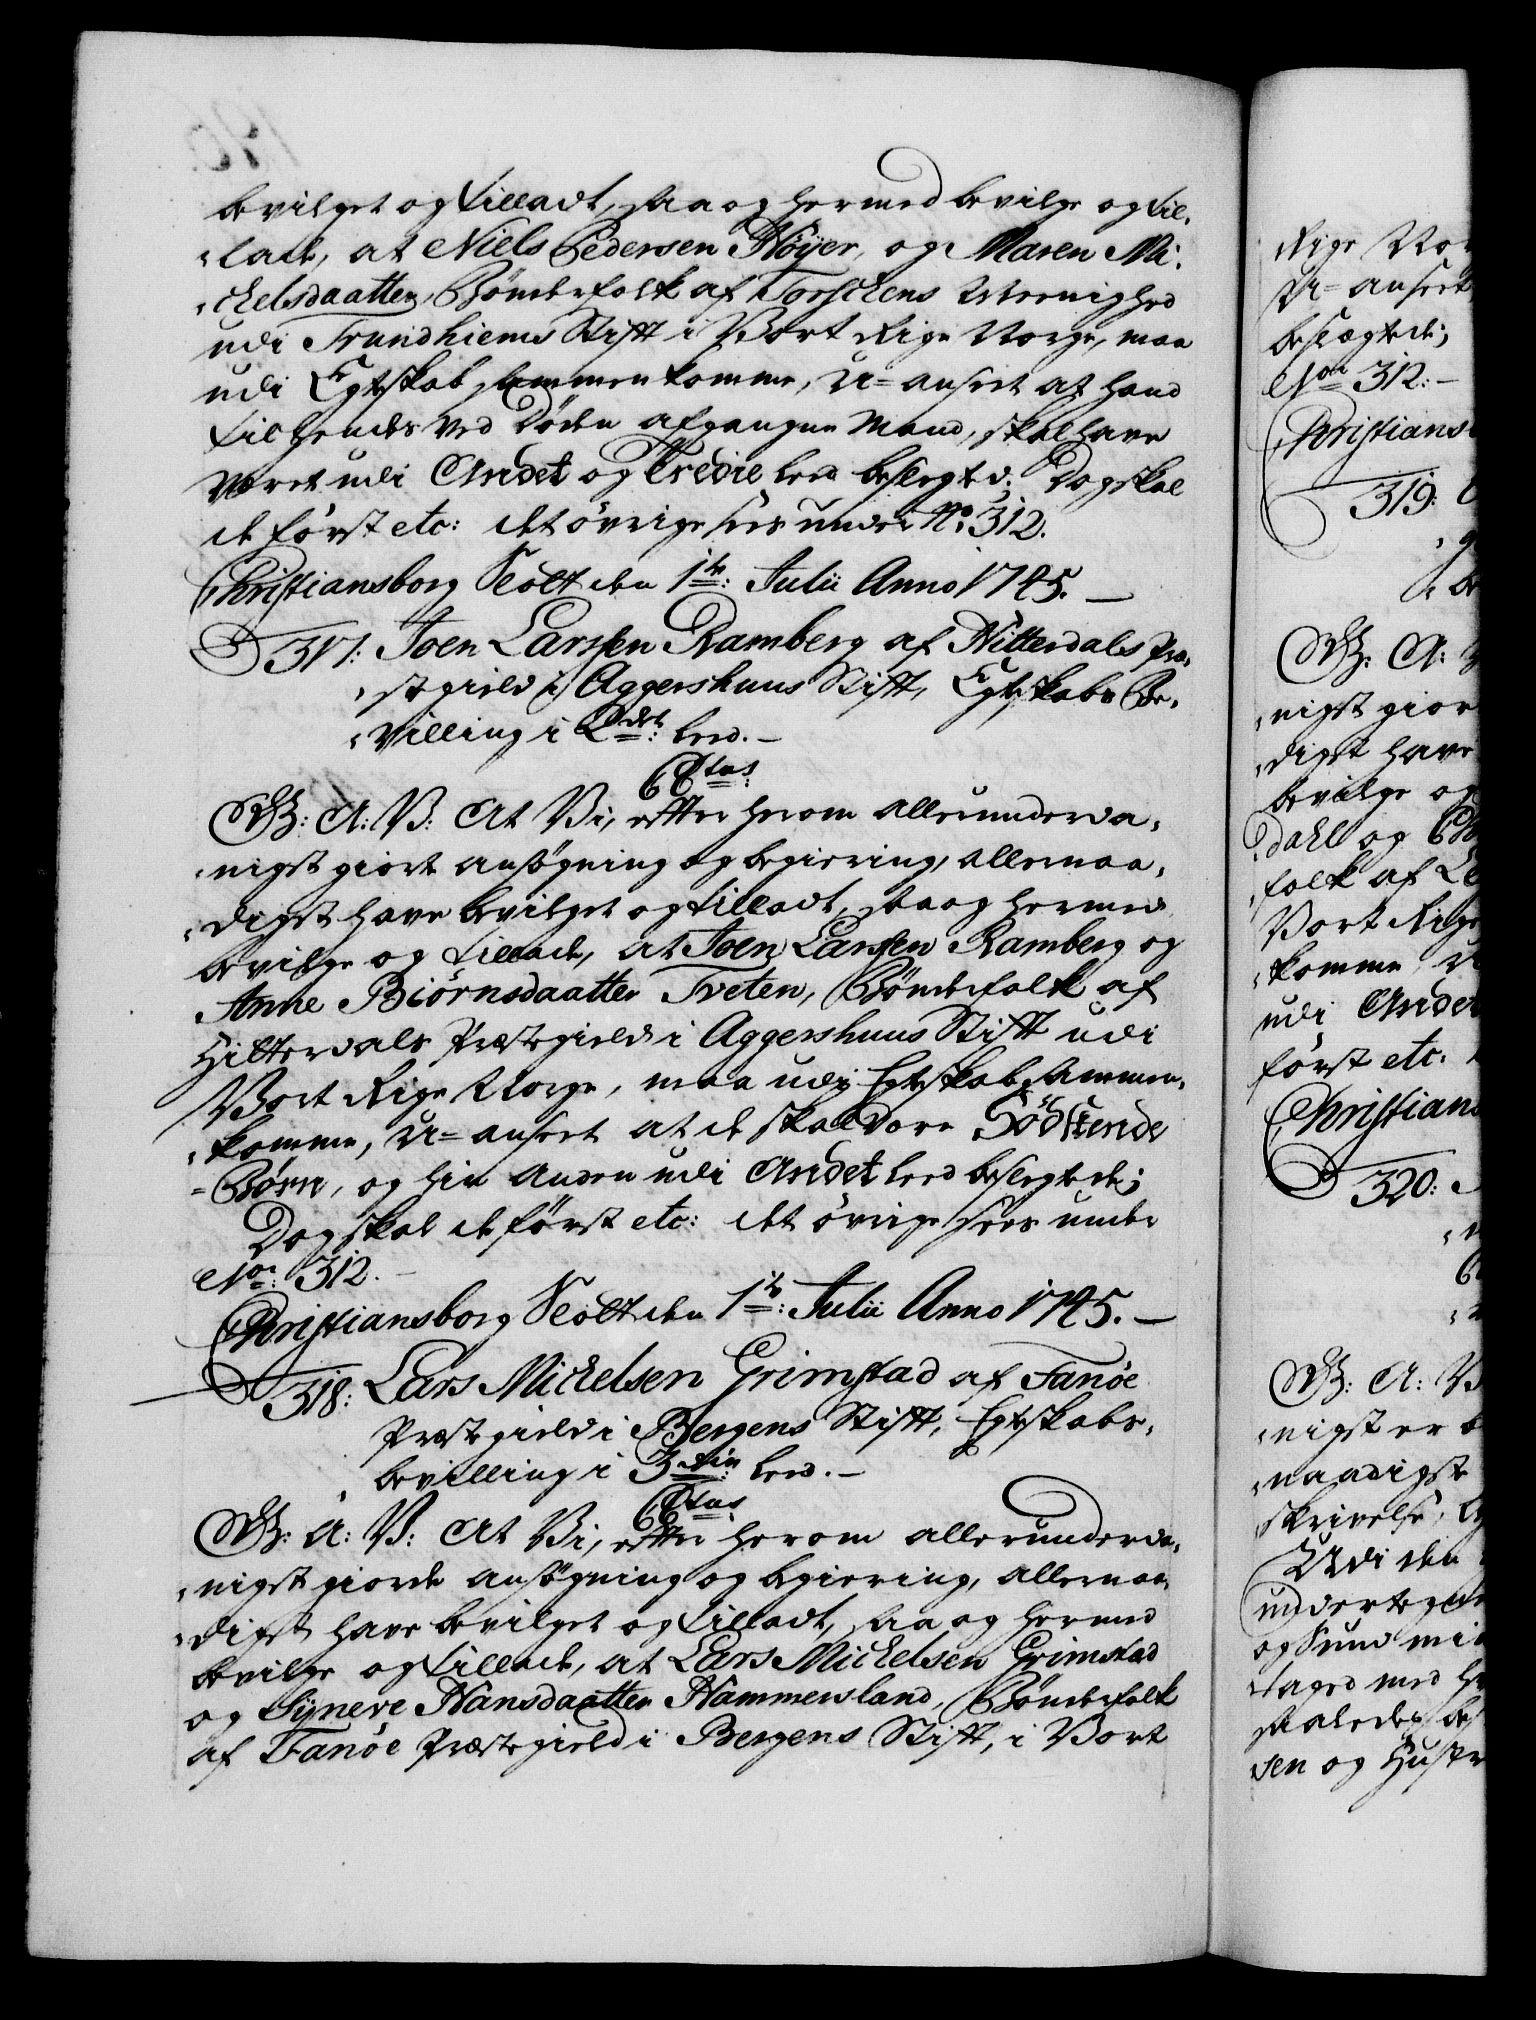 bevilget og tilladt, saa og hermed bevilge og til-
„lade, at Niels Pedersen Høyer, og Maren Mi-
„chelsdaatter, Bønderfolk af Torschens Meenighed
udi Trundhiems Stift i Vort Rige Norge, maa
udi Egteskab sammenkomme, U=anseet at hand
til hendes ved Døden afgangne Mand, skal have
været udi Andet og Tredie leed beslegted. Dog skal
de først etc: det øvrige sees under No. 312.
Christiansborg Slott den 1te: Julii Anno 1745. —
317: Joen Larssen Ramberg af Hitterdals Præ-
„stegield i Aggershuus Stift, Egteskabs Be-
„villing i 2det: leed. —
C6tus:
W: G: A: V: At Vi, efter herom allerunderda-
„nigst giort ansøgning og begiering, allernaa-
„digst have bevilget og tilladt, saa og hermed
bevilge og tillade, at Joen Larssen Ramberg og
Anne Biørnsdaatter Tveten, Bønderfolk af
Hitterdals Præstegield i Aggershuus Stift udi
Vort Rige Norge, maa udi Egteskab sammen-
„komme, U=anseet at de skal være Södskende
=Børn, og hin anden udi Andet leed beslegtede;
Dog skal de først etc: det øvrige sees under
No: 312. —
Christiansborg Slott den 1te: Julii Anno 1745. —
318: Lars Michelsen Grimstad af Fanöe
Præstegield i Bergens Stift, Egteskabs-
bevilling i 3die: leed. —
C6tus:
W: G: A: V: At Vi, efter herom allerunderda-
„nigst giorde ansøgning og begiering, allernaa-
„digst have bevilget og tilladt, saa og hermed
bevilge og tillade, at Lars Michelsen Grimstad
og Synneve Hansdaatter Hammersland, Bønderfolk
af Fanöe Præstegield i Bergens Stift, i Vort
Rige
U=anseet
beslægtede;
No: 312: —
Christians
319:
W: G: A:
„nigst gior
„digst have
bevilge og
Dahl og
folk af
Vort Rige
„komme,
udi Andet
først etc.
Christians
320:
W: G: A: V
„nigst er
„naadigste
skrivelse,
Udi den
og
„taged med
saaledes
sen og Hustr